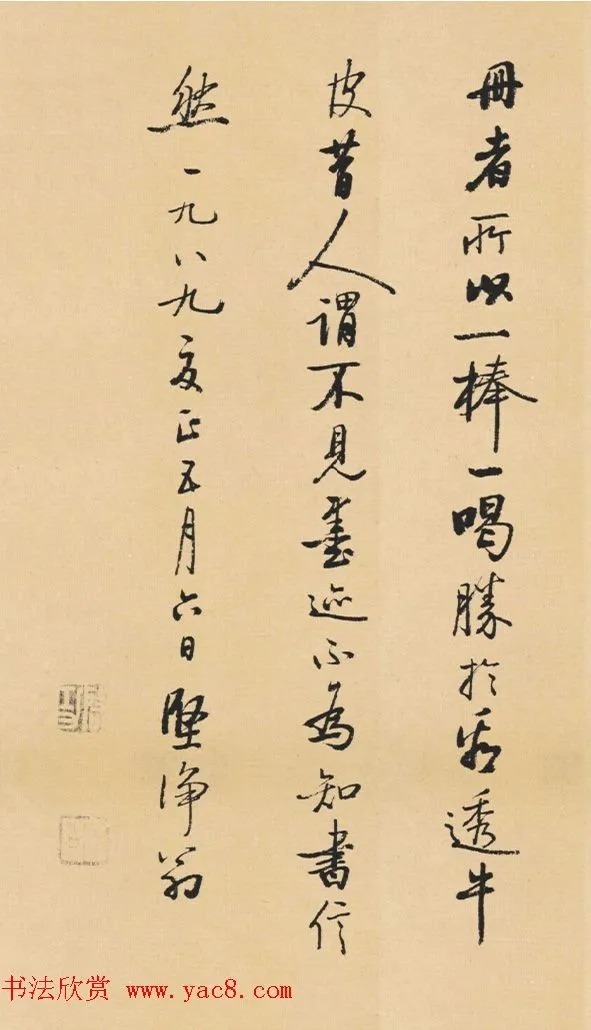 冊者所以一棒一喝勝於看透牛
皮昔人謂不見墨迹不為知書信
然一九八九夏正五月六日堅净翁
书法欣赏 www.yac8.com